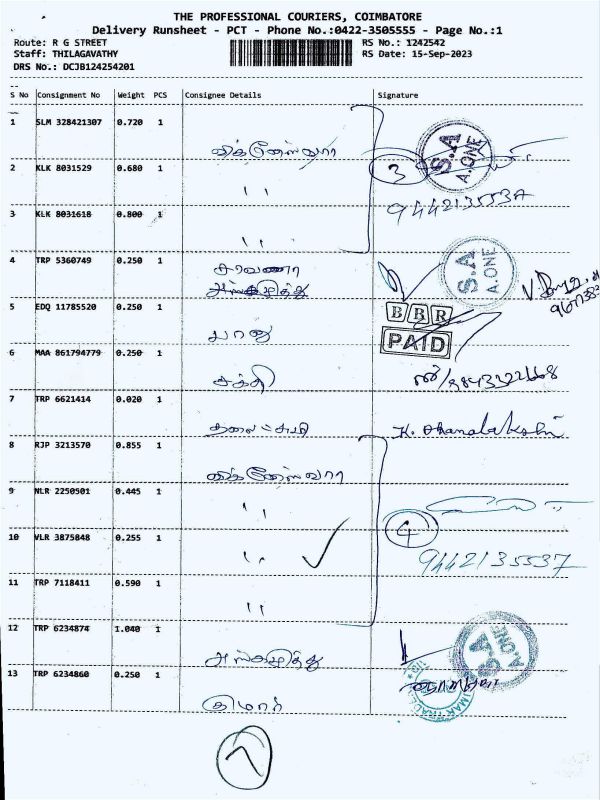 THE PROFESSIONAL COURIERS, COIMBATORE
Delivery Runsheet - PCT - Phone No.:0422-3505555 - Page No.:1
Route: R G STREET RS No.: 1242542
Staff: THILAGAVATHY RS Date: 15-Sep-2023
DRS No.: DCJB124254201
S No Consignment No Weight PCS Consignee Details Signature
1 SLM 328421307 0.720 1
விக்னேஸ்வரா
2 KLK 8031529 0.680 1 3 S.A A.ONE
" 9442135537
3 KLK 8031618 0.800 1
"
4 TRP 5360749 0.250 1 சரவணா S.A A.ONE
5 EDQ 11785520 0.250 1 BBR
பானு PAID
6 MAA 861794779 0.250 1
சக்தி
7 TRP 6621414 0.020 1
K. Dhanalakshmi
8 RJP 3213570 0.855 1
விக்னேஸ்வரா
9 NLR 2250501 0.445 1
"
10 VLR 3875848 0.255 1 4
" 9442135537
11 TRP 7118411 0.590 1
"
12 TRP 6234874 1.040 1 S.A A.ONE
13 TRP 6234860 0.250 1
குமார்
7